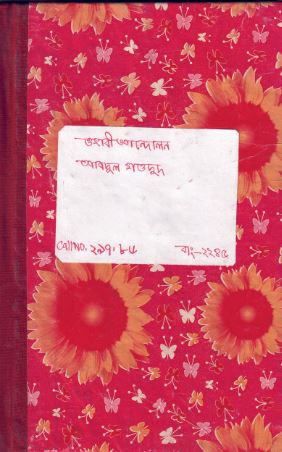 ওহাবী আন্দোলন
আবদুল মওদুদ
Call No. ২৯৭.৮৫ বাং-২২৪৫